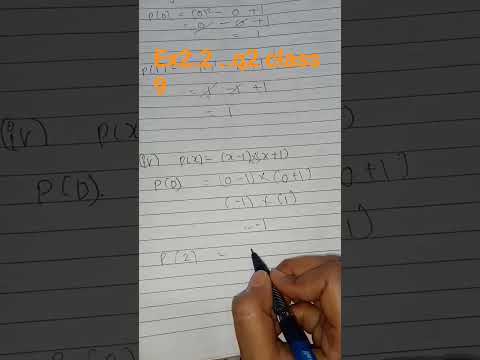 P(0) = (0)² - 0 + 1
= 0 - 0 + 1
= 1
Ex2.2 ..q2 class
9
= 1 - 1 + 1
= 1
(iv) P(x) = (x-1)(x+1)
P(0) = (0-1) × (0+1)
(-1) × (1)
= -1
P(2) =